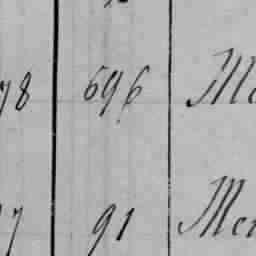 78 696 Me
7 91 Mer